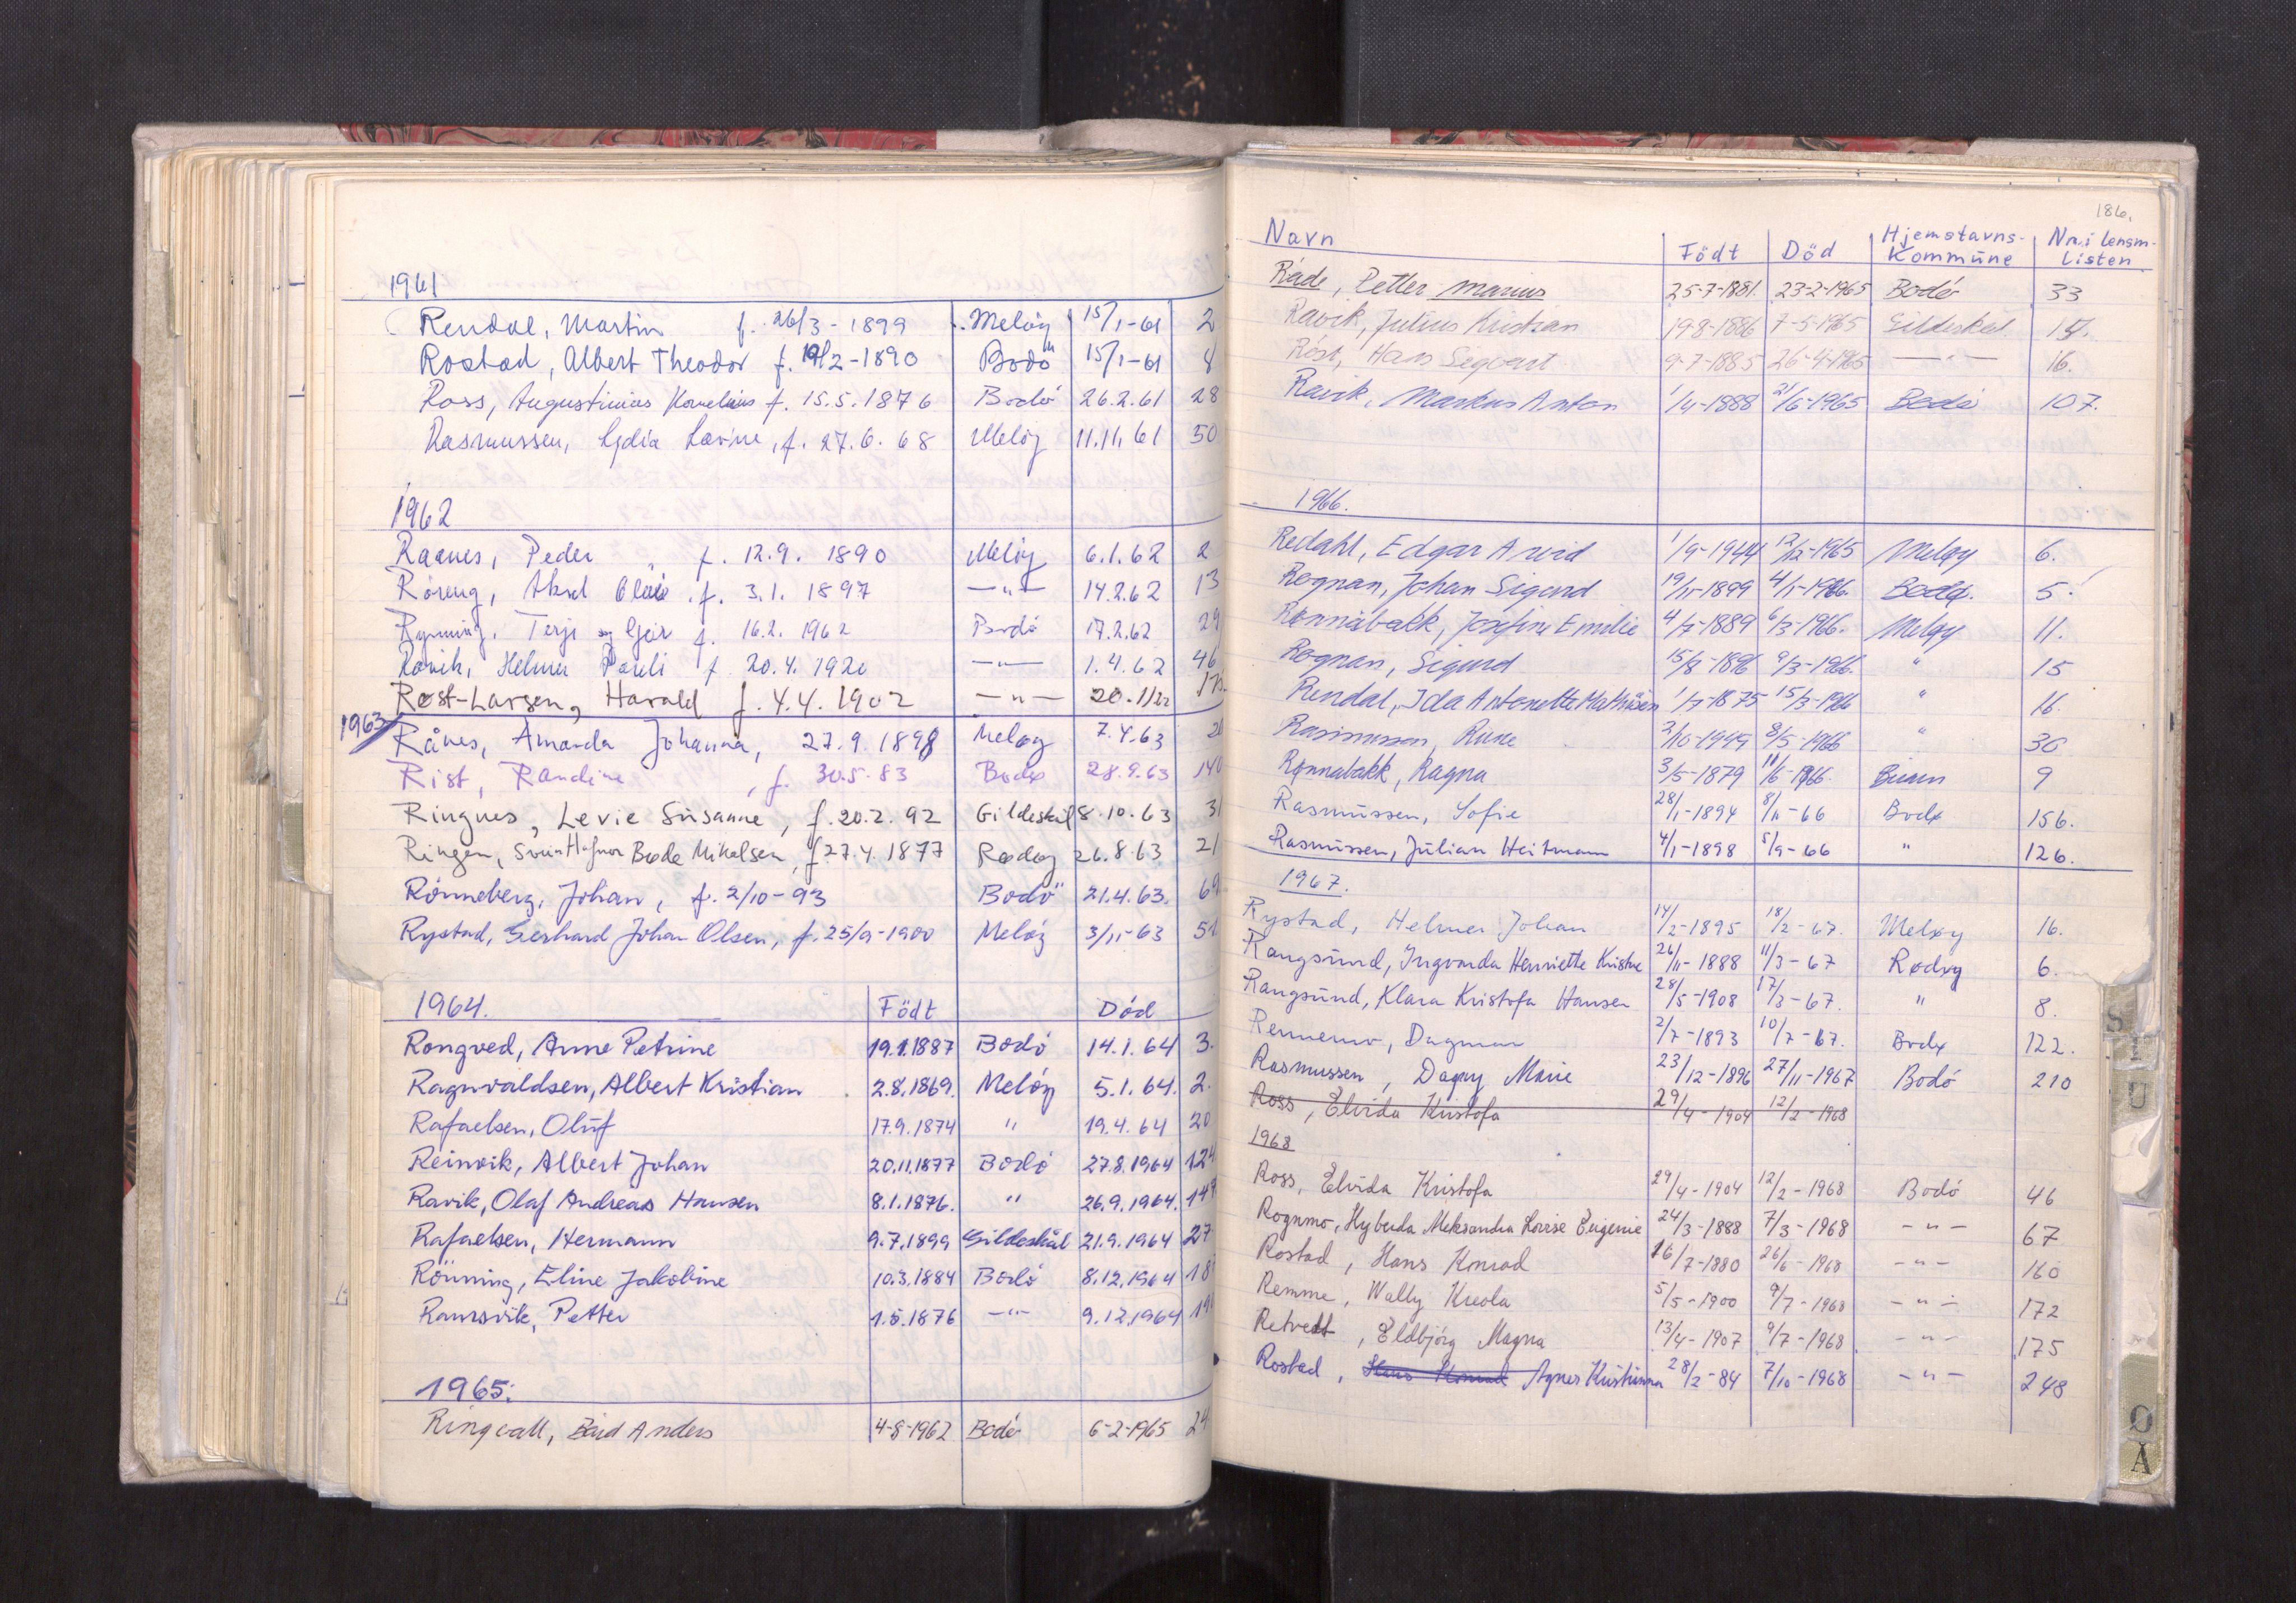 1961
Rendal, Martin f. 26/3 - 1899 Melöy 15/1-61 2
Rostad, Albert Theodor f. 19/2-1890 Bodö 15/1-61 8
Ross, Augustinius Kornelius f. 15.5.1876 Bodó 26.2.61 28
Rasmussen, Lydia Lovine, f. 27.6.68 Melöy 11.11.61 50
1962
Raanes, Peder f. 12.9. 1890 Melöy 6.1.62 2
Röreng, f. 3.1. 1897 —"— 14.2.62 13
Terje og Geir f. 16.2. 1962 Bodó 17.2.62 29
Ravik, Helmer Pareli f 20.4.1920 —"— 1.4.62 46
Røst-Larsen, Harald f. 4.4.1902 —"— 20.11
1963
Rånes, Amanda Johanna, 27.9.1898 Meløy 7.4.63
Rist, Randine, f. 30.5.83 Bodø 28.9.63 140
Ringnes, Levie Susanne, f. 20.2.92 Gildeskål 8.10.63 31
Ringen, Svein Bodø Mikalsen, f. 27.4.1877 Rødøy 26.8.63 21
Rönneberg, Johan, f. 2/10-93 Bodö 21.4.63. 69
Rystad, Gerhard Johan Olsen, f. 25/9-1900 Melöy 3/11-63 51
1964. Född Död
Rongved, Anne Petrine 19.1.1887 Bodó 14.1.64 3.
Ragnvaldsen, Albert Kristian 2.8.1869. Melöy 5.1.64. 2.
Rafaelsen, Oluf 17.9.1874 " 19.4.64 20
Reinvik, Albert Johan 20.11.1877 Bodó 27.8.1964 124
Ravik, Olaf Andreas Hansen 8.1.1876. " 26.9.1964. 149
Rafaelsen, Hermann 9.7.1899 Gildeskål 21.9.1964 27
Rönning, Eline Jakobine 10.3.1884 Bodó 8.12.1964 18
Ramsvik, Petter 1.5.1876 —"— 9.12.1964 19
1965:
Ringvall, Bård Anders 4-8-1962 Bodó 6-2-1965 24
186.
Navn Född Död Hjemstavns-Kommune Nr. i lensm-listen
Råde, Petter Marius 25-7-1881. 23-2-1965 Bodó 33
Ravik, Julius Kristian 19-8-1886 7-5-1965 Gildeskål 15.
Röst, Hans Sigvart 9-7-1885 26-4-1965 —"— 16.
Ravik, Markus Anton 1/4-1888 21/6-1965 Bodó 107.
1966.
Redahl, Edgar Arvid 1/9-1944 12/12-1965 Meløy 6.
Rognan, Johan Sigurd 19/11-1899 4/1-1966. Bodø. 5.
Rønnåbakk, Josefine Emilie 4/7-1889 6/3-1966. Meløy 11.
Rognan, Sigurd 15/8-1896 9/3-1966. " 15
Rendal, Ida Antonette Mathisen 1/7-1875 15/3-1966 " 16.
Rasmussen, Rune 2/10-1949 8/5-1966 " 36
Rønnabakk, Ragna 3/5-1879 11/6-1966. 9
Rasmussen, Sofie 28/1-1894 8/11-66 Bodø 156.
Rasmussen, Julian Heitmann 4/1-1898 5/9-66 " 126.
1967.
Rystad, Helmer Johan 14/2-1895 18/2-67. Meløy 16.
Rangsund, Ingvarda Henriette Kristine 26/11-1888 11/3-67 Rødøy 6.
Rangsund, Klara Kristofa Hansen 28/5-1908 17/3-67. " 8.
Rennemo, Dagmar 2/7-1893 10/7-67. Bodø 122.
Rasmussen, Dagny Marie 23/12-1896 27/11-1967 Bodó 210
Ross, Elvida Kristofa 29/4-1904 12/2-1968
1968
Ross, Elvida Kristofa 29/4-1904 12/2-1968 Bodó 46
Rognmo, Hyberda Aleksandra Lovise Eugenie 24/3-1888 7/3-1968 —"— 67
Rostad, Hans Konrad 16/7-1880 26/6-1968 —"— 160
Remme, Wally Kreola 5/5-1900 9/7-1968 —"— 172
Retvedt, Eldbjörg Magna 13/4-1907 9/7-1968 —"— 175
Rostad, Hans Konrad Agnes Kristianna 28/2-84 7/10-1968 —"— 248
S
U
Ø
Å